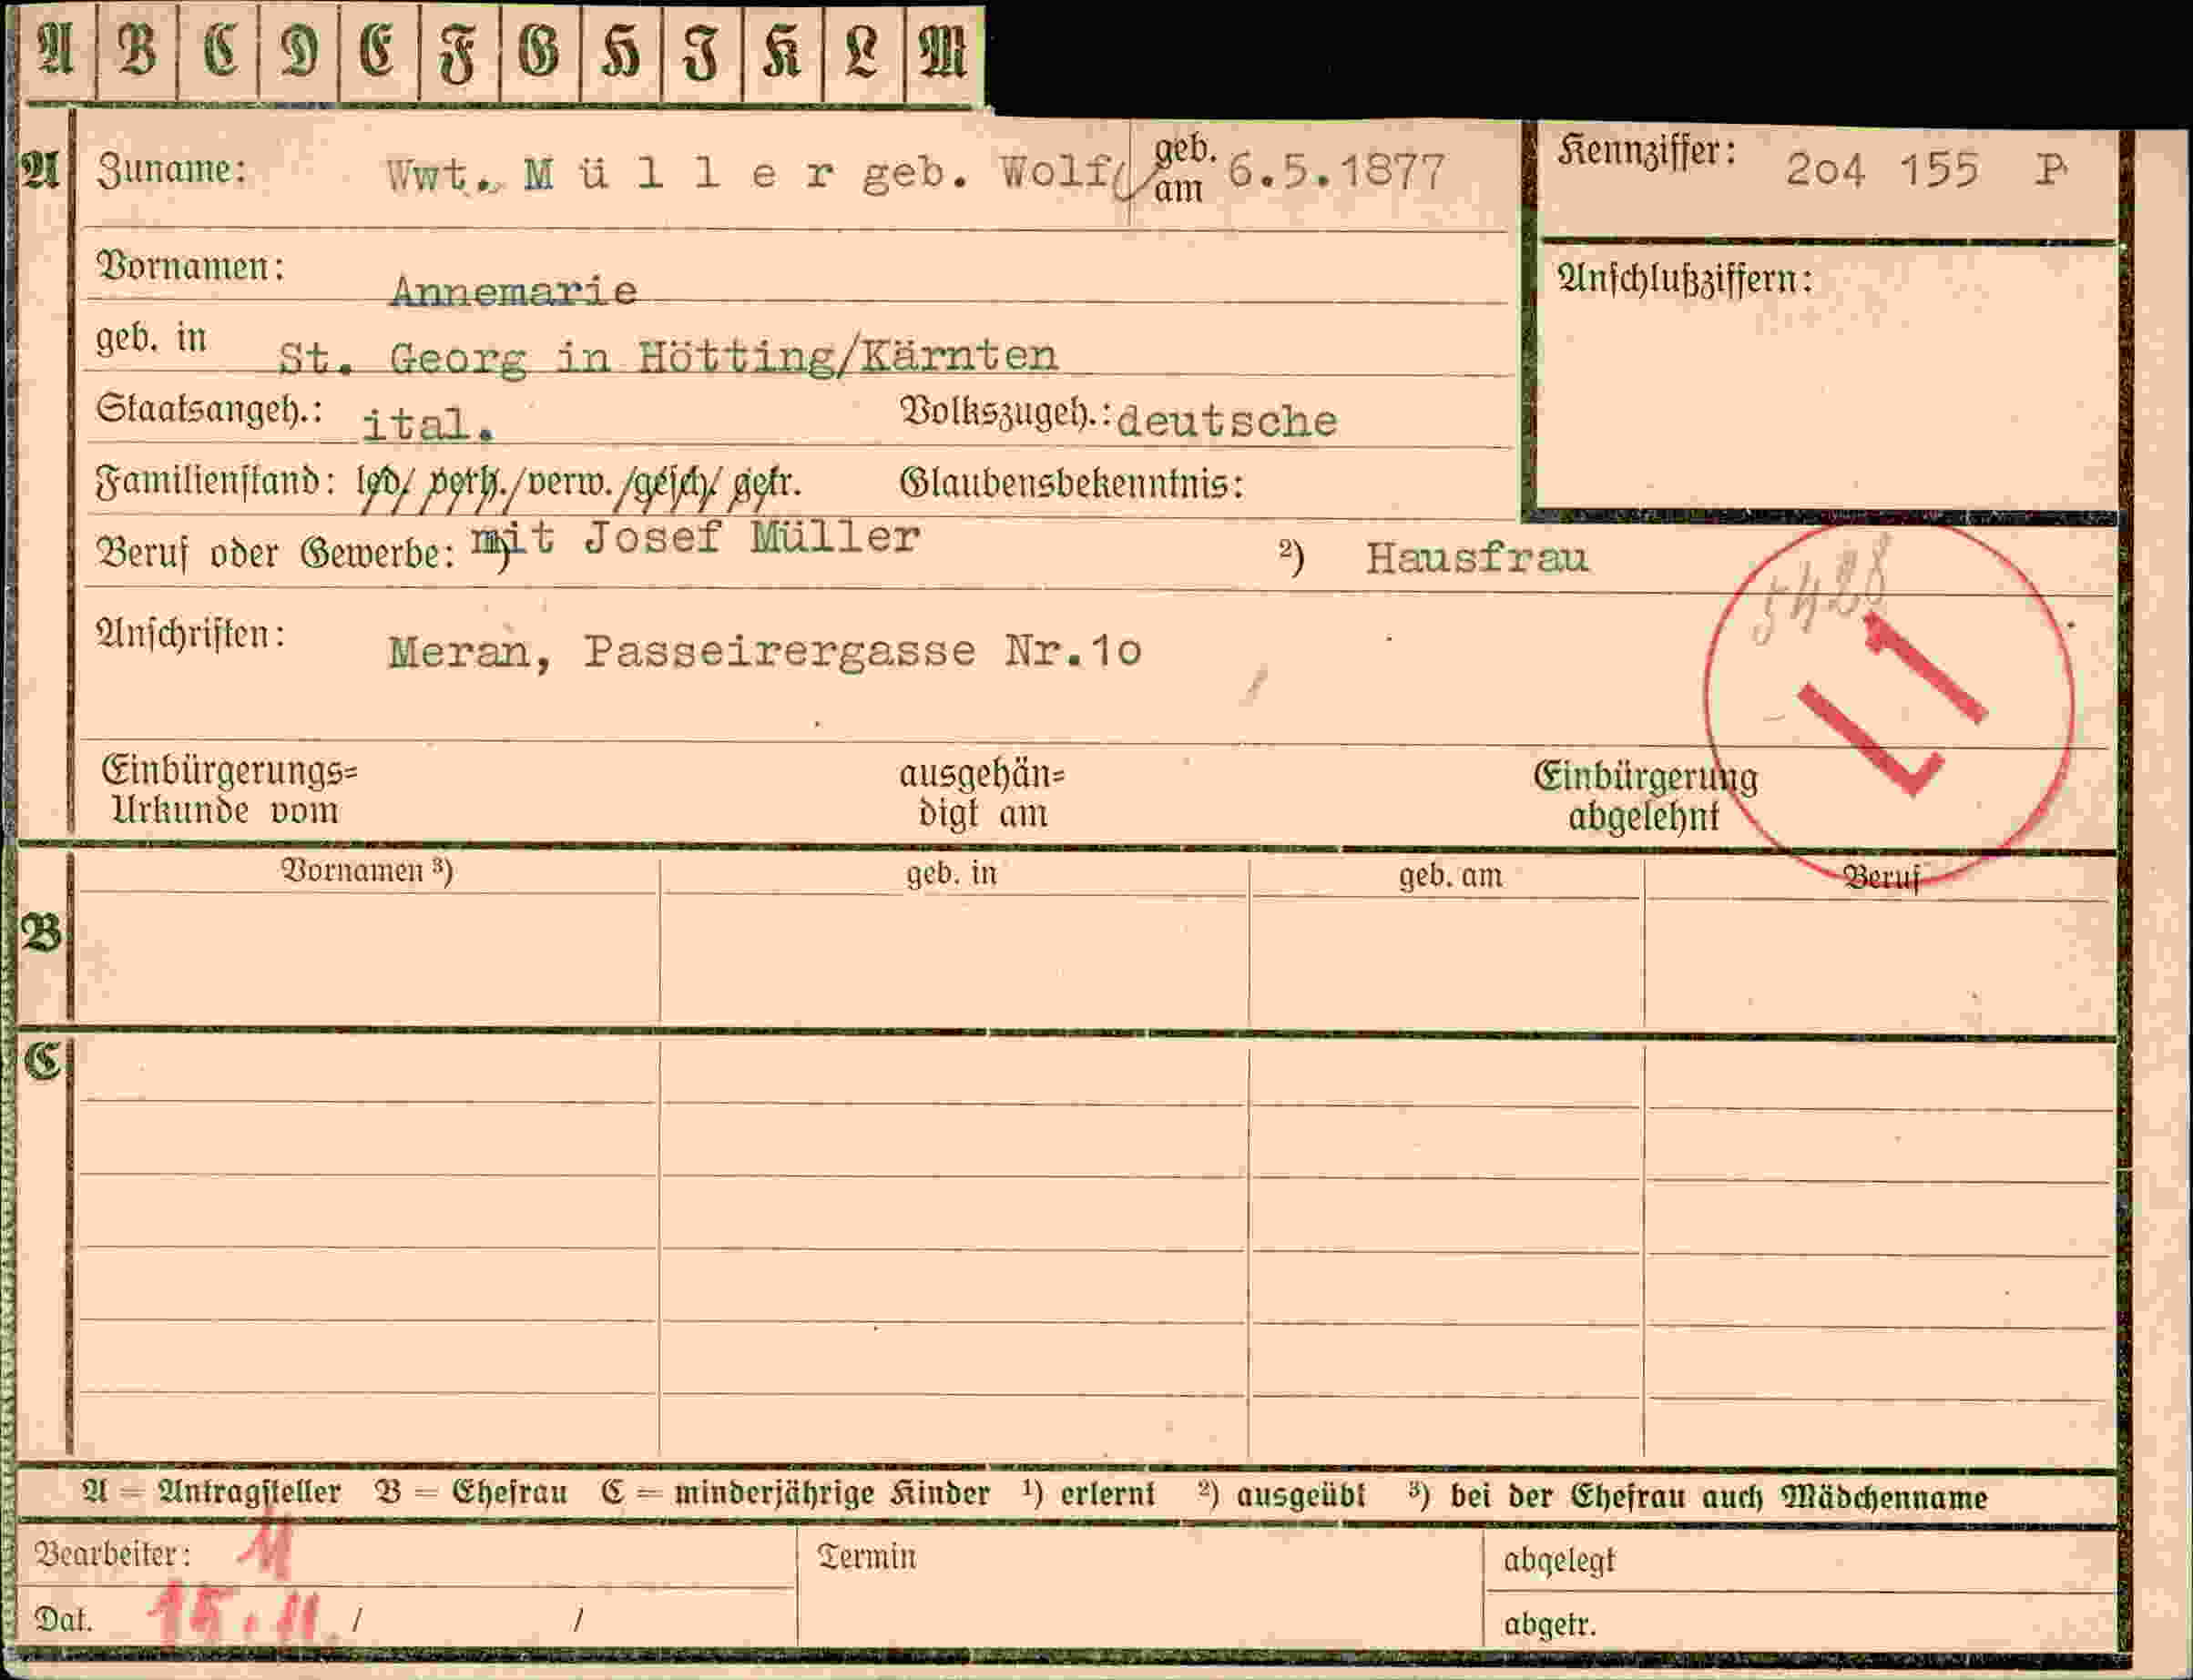 A B C D E F G H J K L M
A Zuname: Wwt. M ü l l e r geb. Wolf geb. am 6.5.1877 Kennziffer: 2o4 155 P
Vornamen: Annemarie Anschlußziffern:
geb. in St. Georg in Hötting/Kärnten
Staatsangeh.: ital. Volkszugeh.: deutsche
Familienstand: led/ verh./verw./gesch/ getr. Glaubensbekenntnis:
Beruf oder Gewerbe: mit Josef Müller ²) Hausfrau
5428
Anschriften: Meran, Passeirergasse Nr.1o
L 1
Einbürgerungs= ausgehän= Einbürgerung
Urkunde vom digt am abgelehnt
Vornamen ³) geb. in geb. am Beruf
B
C
A = Antragsteller B = Ehefrau C = minderjährige Kinder ¹) erlernt ²) ausgeübt ³) bei der Ehefrau auch Mädchenname
Bearbeiter: Termin abgelegt
Dat. 15.11. / / abgetr.